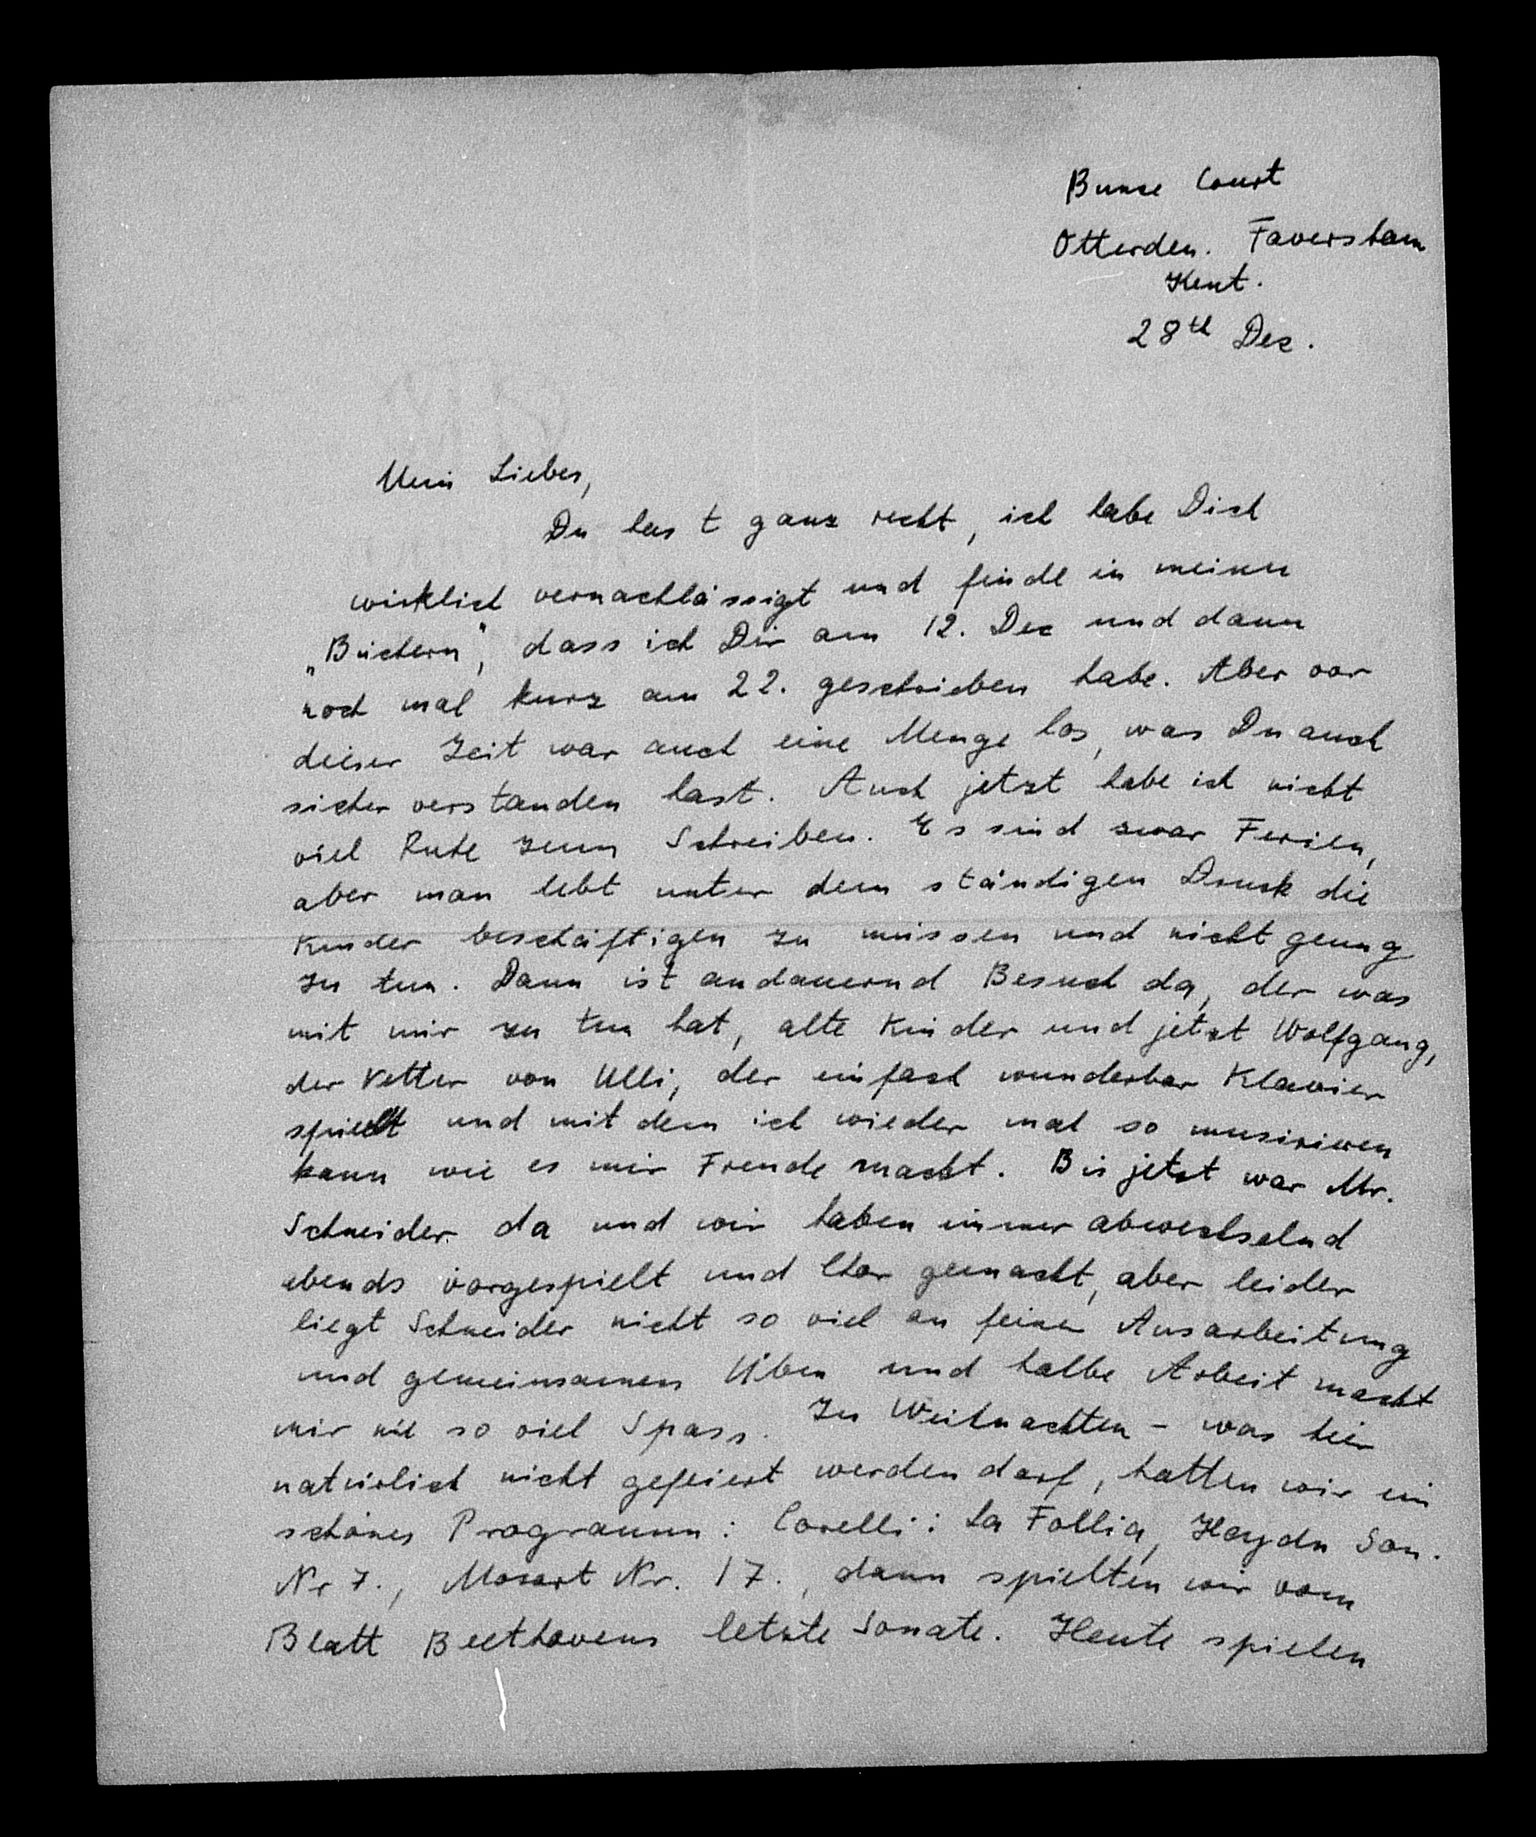 Bunce Court
Otterden. Faversham
Kent.
28th Dec.
Mein Liebes,
Du hast ganz recht, ich habe Dich
wirklich vernachlässigt und finde in meinen
„Büchern", dass ich Dir am 12. Dec und dann
noch mal kurz am 22. geschrieben habe. Aber vor
dieser Zeit war auch eine Menge los, was Du auch
sicher verstanden hast. Auch jetzt habe ich nicht
viel Ruhe zum Schreiben. Es sind zwar Ferien,
aber man lebt unter dem ständigen Druck die
Kinder beschäftigen zu müssen und nicht genug
zu tun. Dann ist andauernd Besuch da, der was
mit mir zu tun hat, alte Kinder und jetzt Wolfgang,
der Vetter von Ulli, der einfach wunderbar Klavier
spielt und mit dem ich wieder mal so musizieren
kann wie es mir Freude macht. Bis jetzt war Mr.
Schneider da und wir haben immer abwechselnd
abends vorgespielt und Chor gemacht, aber leider
liegt Schneider nicht so viel an feiner Ausarbeitung
und gemeinsamen Üben und halbe Arbeit macht
mir nie so viel Spass. Zu Weihnachten - was hier
natürlich nicht gefeiert werden darf, hatten wir ein
schönes Programm: Corelli: La Follia, Haydn Son.
Nr 7., Mozart Nr. 17., dann spielten wir vom
Blatt Beethovens letzte Sonate. Heute spielen